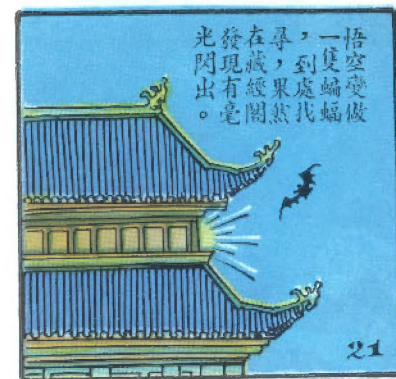 悟空變做
一隻蝙蝠
，到處找
尋，果然
在藏經閣
發現有毫
光閃出。
21